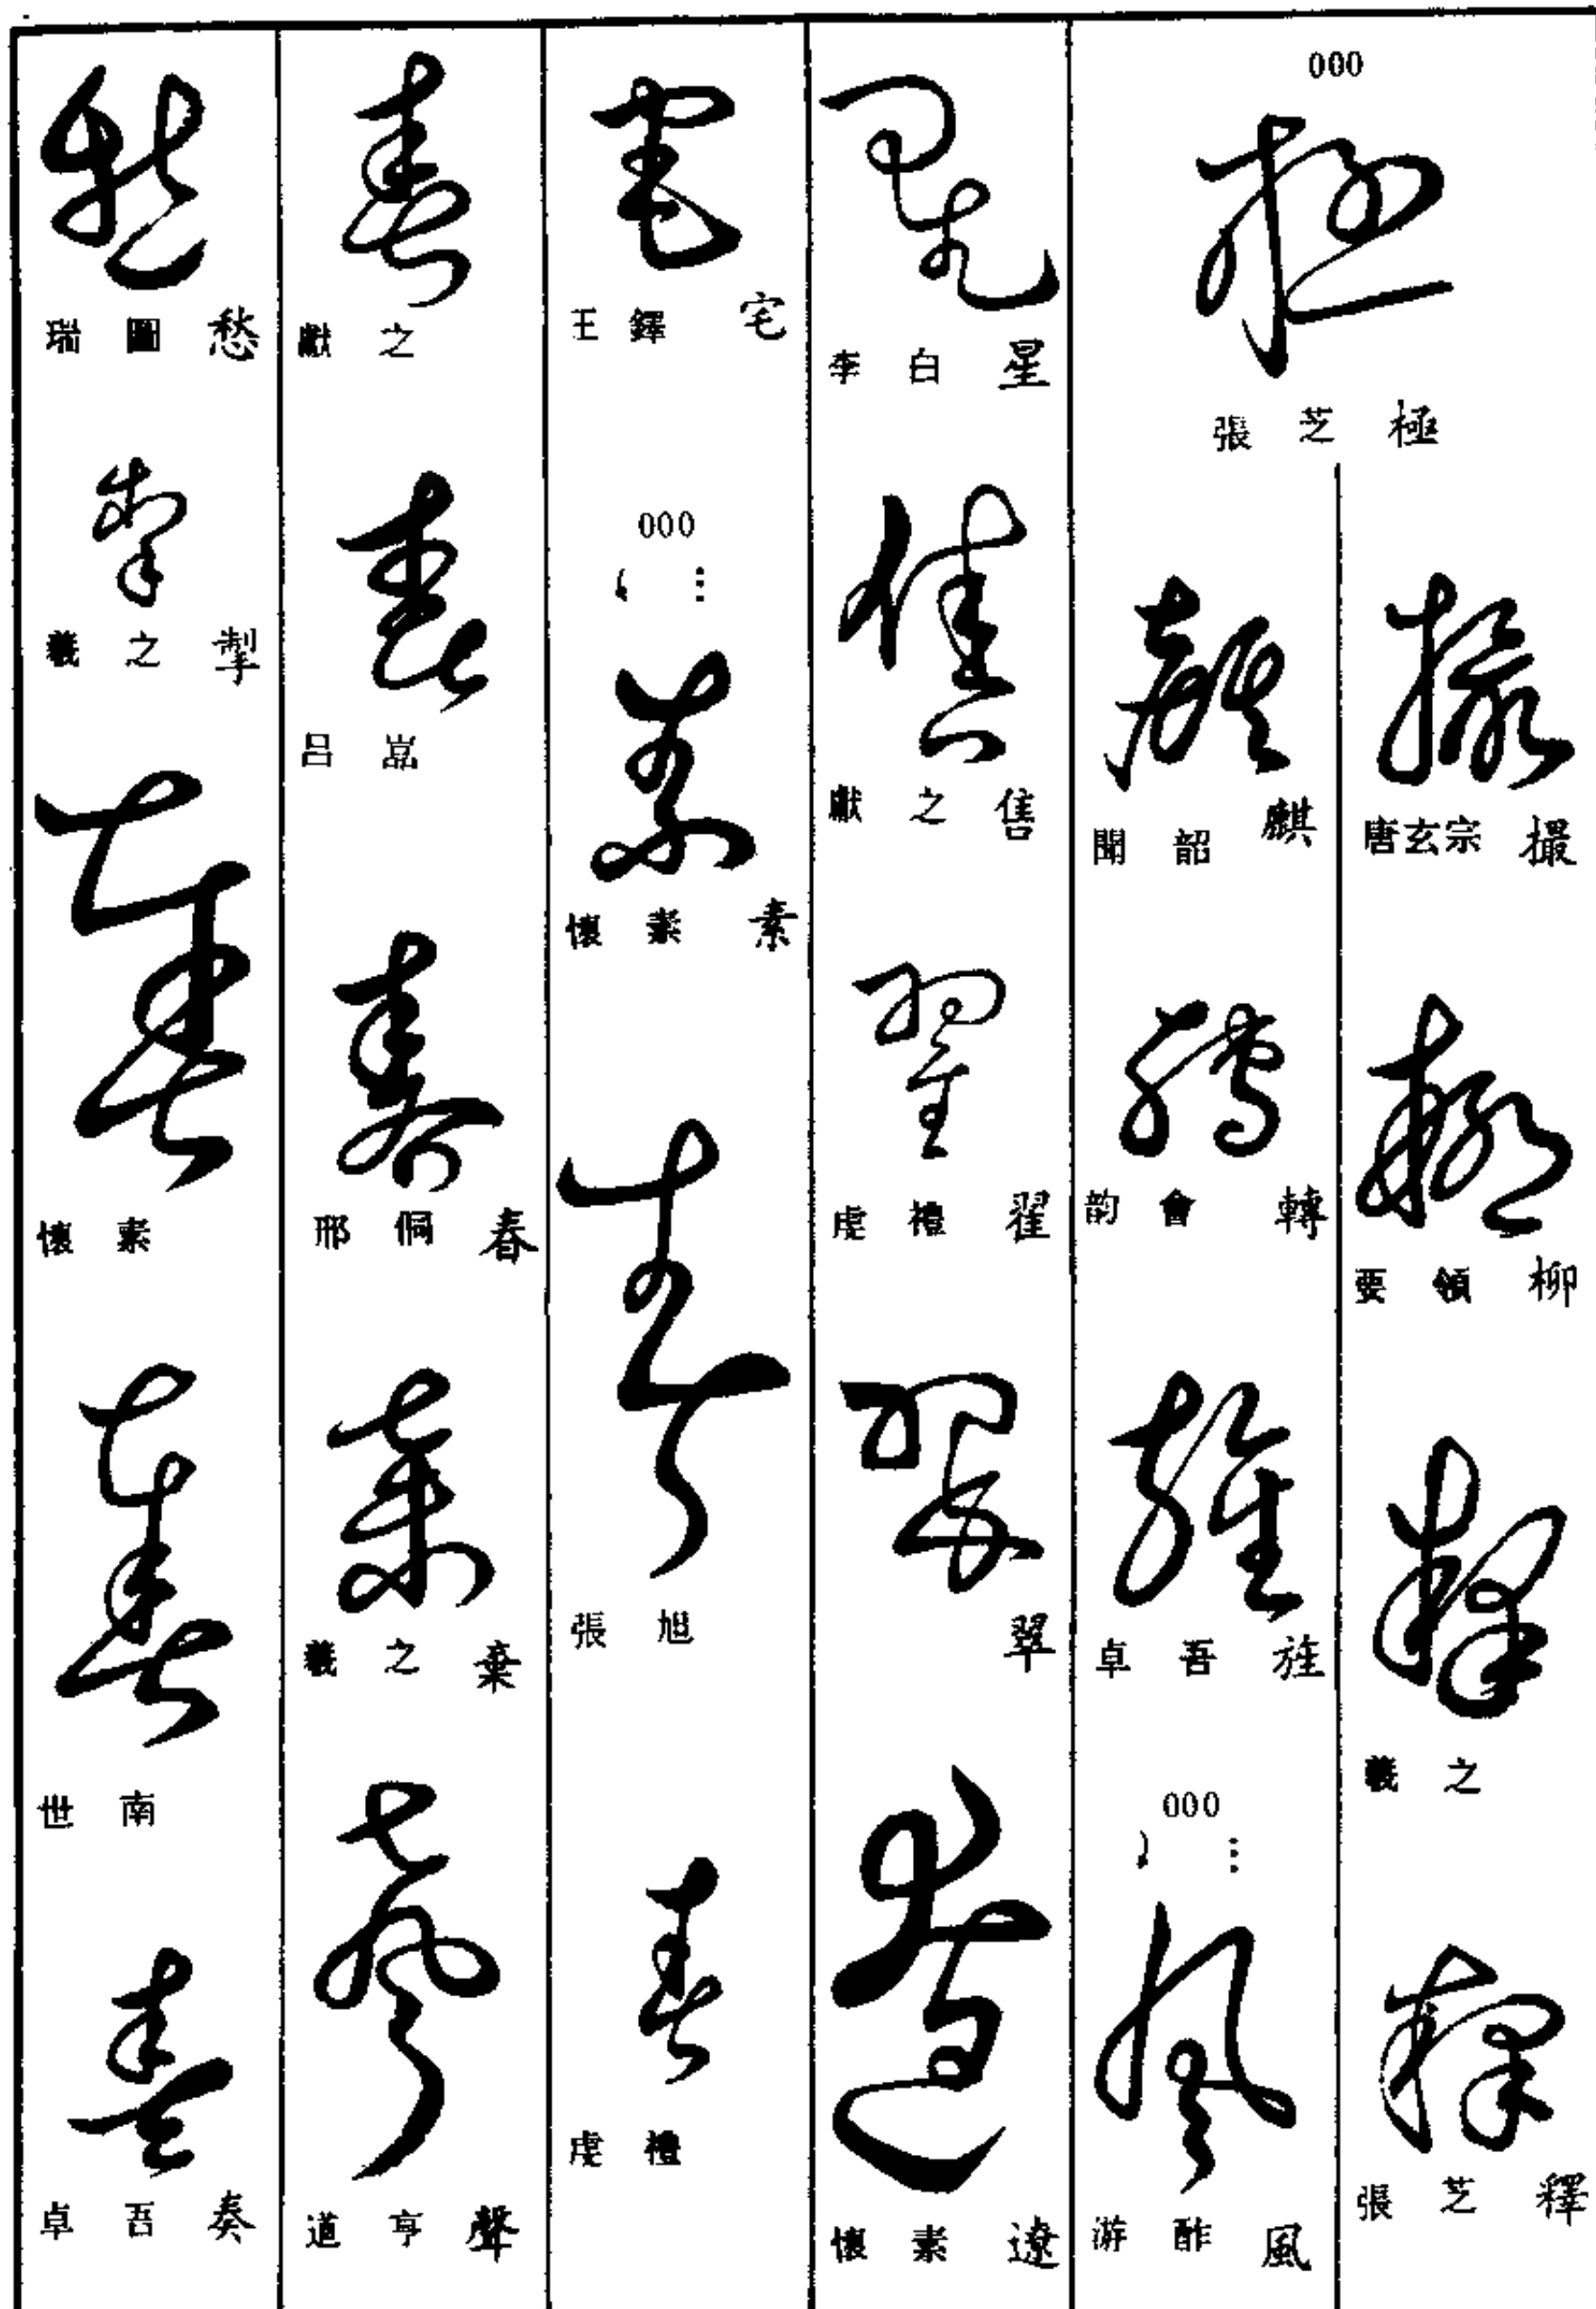 000
張芝 極
唐玄宗 撮
要領 柳
羲之
張芝 釋
聞韶 麒
韵會 轉
卓吾 旌
000
游酢 風
李白 星
獻之 售
虔禮 翟
翠
懷素 遼
王鐸 宅
000
懷素 素
張旭
虔禮
獻之
呂嵓
邢侗 春
羲之 棄
道亨 聲
瑞圖 愁
羲之 掣
懷素
世南
卓吾 奏